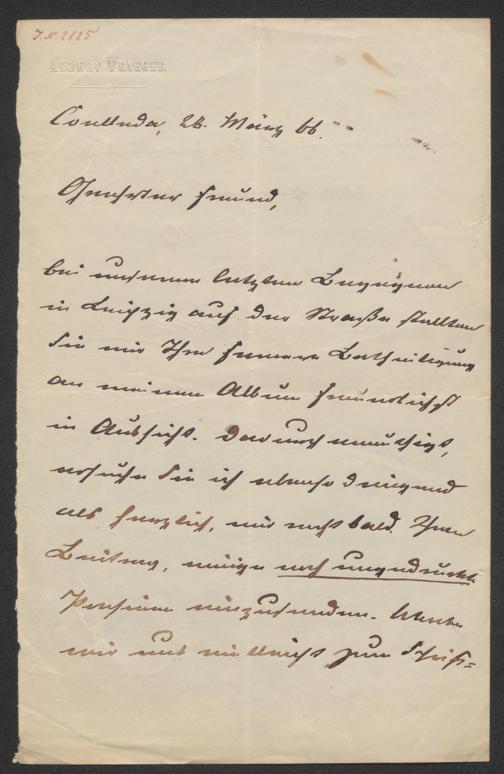 J.N. 2125
ALBERT TRAEGER
Cölleda, 26. März 66.
Geehrter Freund,
bei unserem letzten Begegnen
in Leipzig auf der Straße stellten
Sie mir Ihre fernere Betheiligung
an meinem Album freundlichst
in Aussicht. Dadurch ermuthigt,
ersuche Sie ich ebenso dringend
als herzlich, mir recht bald Ihren
Beitrag, einige noch ungedruckte
Poesieen einzusenden. Wenn
wir uns vielleicht zum Schrift=